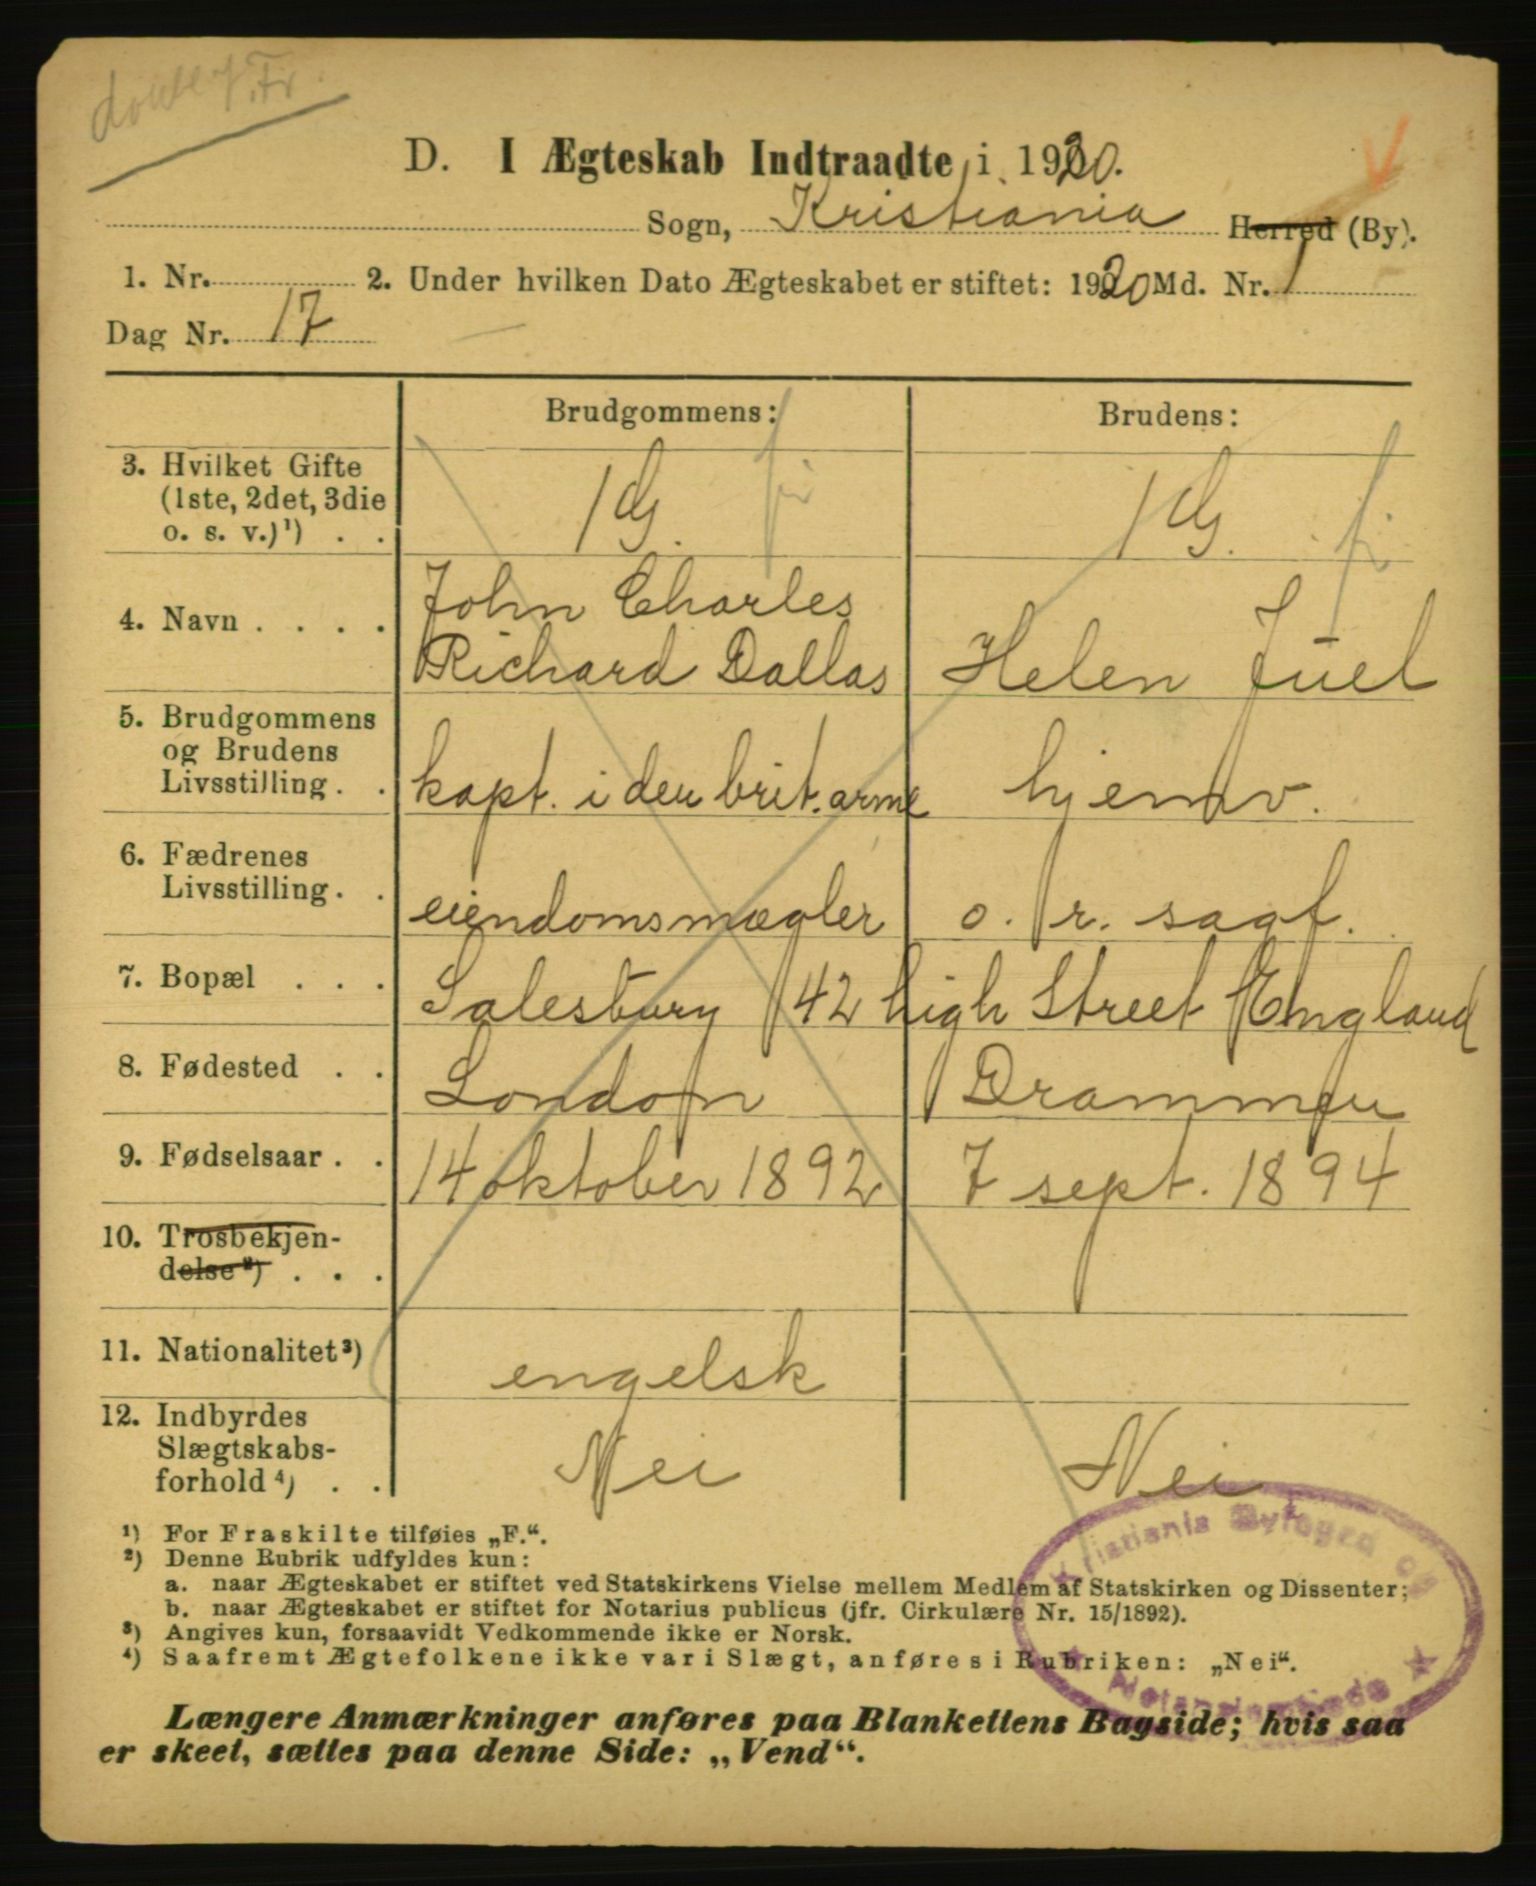 D. I Ægteskab Indtraadte i 1920.
Sogn, Kristiania Herred (By).
1. Nr. 2. Under hvilken Dato Ægteskabet er stiftet: 1920 Md. Nr. 1
Dag Nr. 17
Brudgommens: Brudens:
3. Hvilket Gifte
(1ste, 2det, 3die
o. s. v.)¹) . . 1 G. 1 G.
4. Navn . . . . John Charles
Richard Dallas Helen Juel
5. Brudgommens
og Brudens
Livsstilling . . kapt. i den brit. arme hjemv.
6. Fædrenes
Livsstilling . . eiendomsmægler o. r. sagf.
7. Bopæl . . . Salesbury 42 high Street England
8. Fødested . . London Drammen
9. Fødselsaar . . 14 oktober 1892 7 sept. 1894
10. Trosbekjen-
delse²) . . .
11. Nationalitet³) engelsk
12. Indbyrdes
Slægtskabs-
forhold⁴) . . Nei Nei
¹) For Fraskilte tilføies „F.“.
²) Denne Rubrik udfyldes kun:
a. naar Ægteskabet er stiftet ved Statskirkens Vielse mellem Medlem af Statskirken og Dissenter;
b. naar Ægteskabet er stiftet for Notarius publicus (jfr. Cirkulære Nr. 15/1892).
³) Angives kun, forsaavidt Vedkommende ikke er Norsk.
⁴) Saafremt Ægtefolkene ikke var i Slægt, anføres i Rubriken: „Nei“.
Kristiania Byfoged og
Længere Anmærkninger anføres paa Blankettens Bagside; hvis saa
er skeet, sættes paa denne Side: „Vend“.